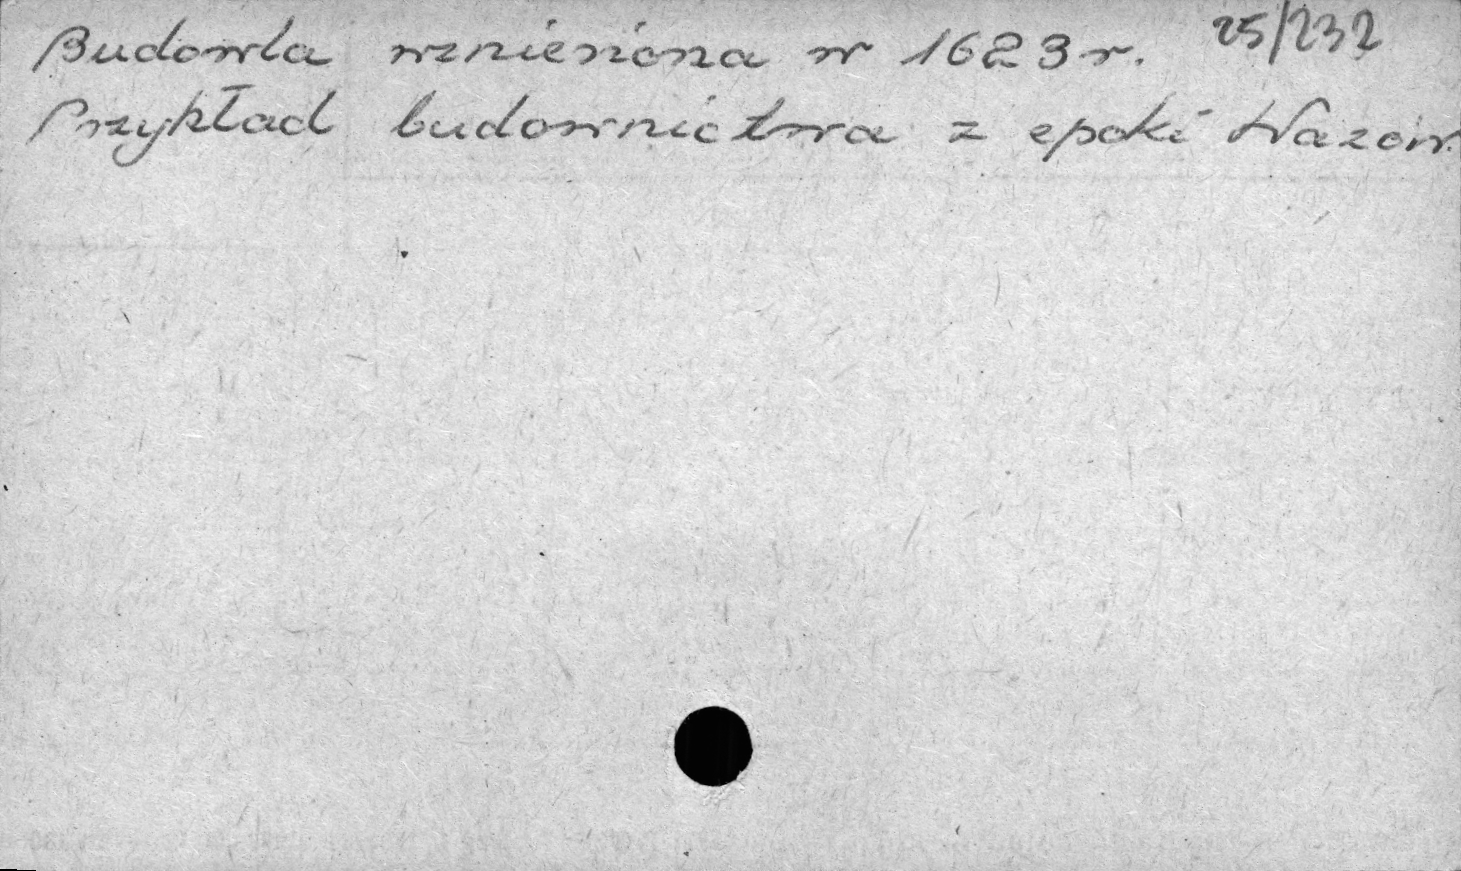 Budowla wzniesiona w 1623 r. 25/232
Przykład budownictwa z epoki Wazów.